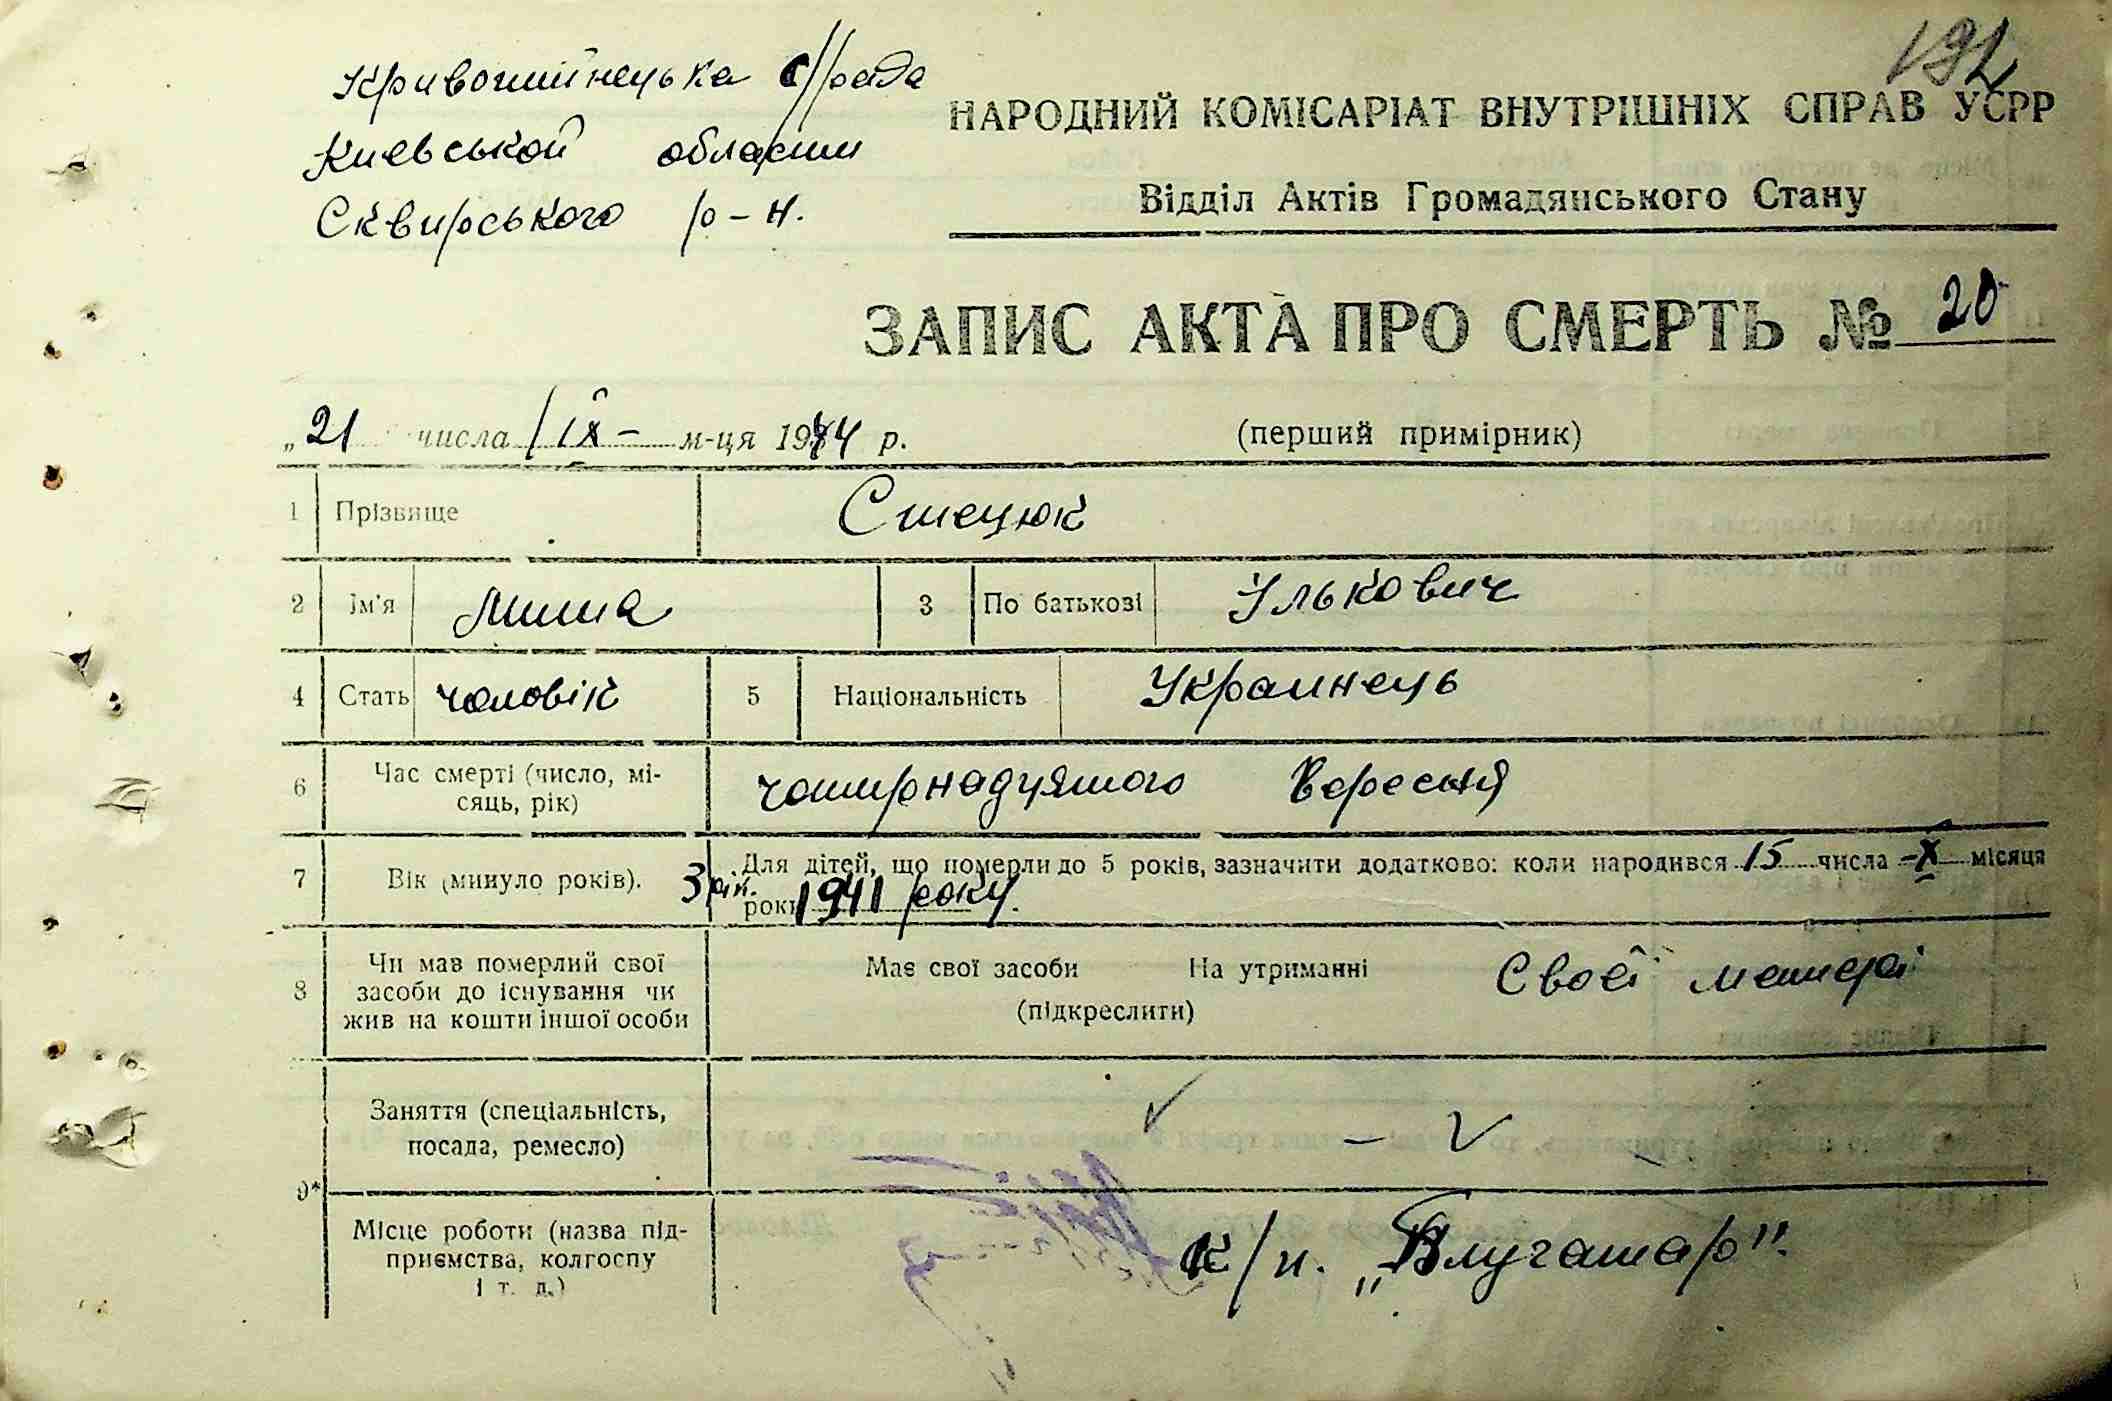 192
Кривошиїнецька с/рада
Киевськой области
Сквирського р-н.
НАРОДНИЙ КОМІСАРІАТ ВНУТРІШНІХ СПРАВ УСРР
Відділ Актів Громадянського Стану
ЗАПИС АКТА ПРО СМЕРТЬ № 20
„21 числа IX – м-ця 1944 р.
(перший примірник)
1 Прізвище Стецюк
2 Ім'я Миша 3 По батькові Улькович
4 Стать чоловік 5 Національність Украинець
6 Час смерті (число, мі-
сяць, рік) чотирнадцятого Вересня
7 Вік (минуло років). 3 рік. Для дітей, що померли до 5 років, зазначити додатково: коли народився 15 числа -X- місяця
рок 1941 року.
8 Чи мав померлий свої
засоби до існування чи
жив на кошти іншої особи
Має свої засоби На утриманні Своєї матері
(підкреслити)
9* Заняття (спеціальність,
посада, ремесло) –
Місце роботи (назва під-
приємства, колгоспу
і т. д.)
к/г. „Плугатар".